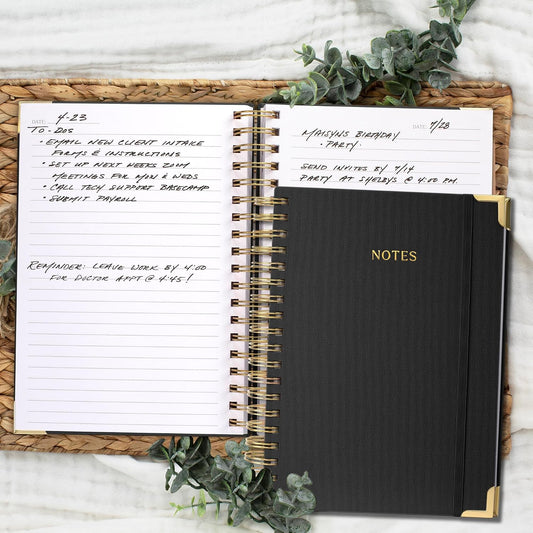 DATE: 4-23
TO-DOS
• EMAIL NEW CLIENT INTAKE
FORMS & INSTRUCTIONS
• SET UP NEXT WEEKS ZOOM
MEETINGS FOR MON & WEDS
• CALL TECH SUPPORT BASECAMP
• SUBMIT PAYROLL
REMINDER: LEAVE WORK BY 4:00
FOR DOCTOR APPT @ 4:45!
DATE: 7/28
MAISYNS BIRTHDAY
• PARTY
SEND INVITES BY 7/14
PARTY AT SHELBYS @ 4:00 PM.
NOTES